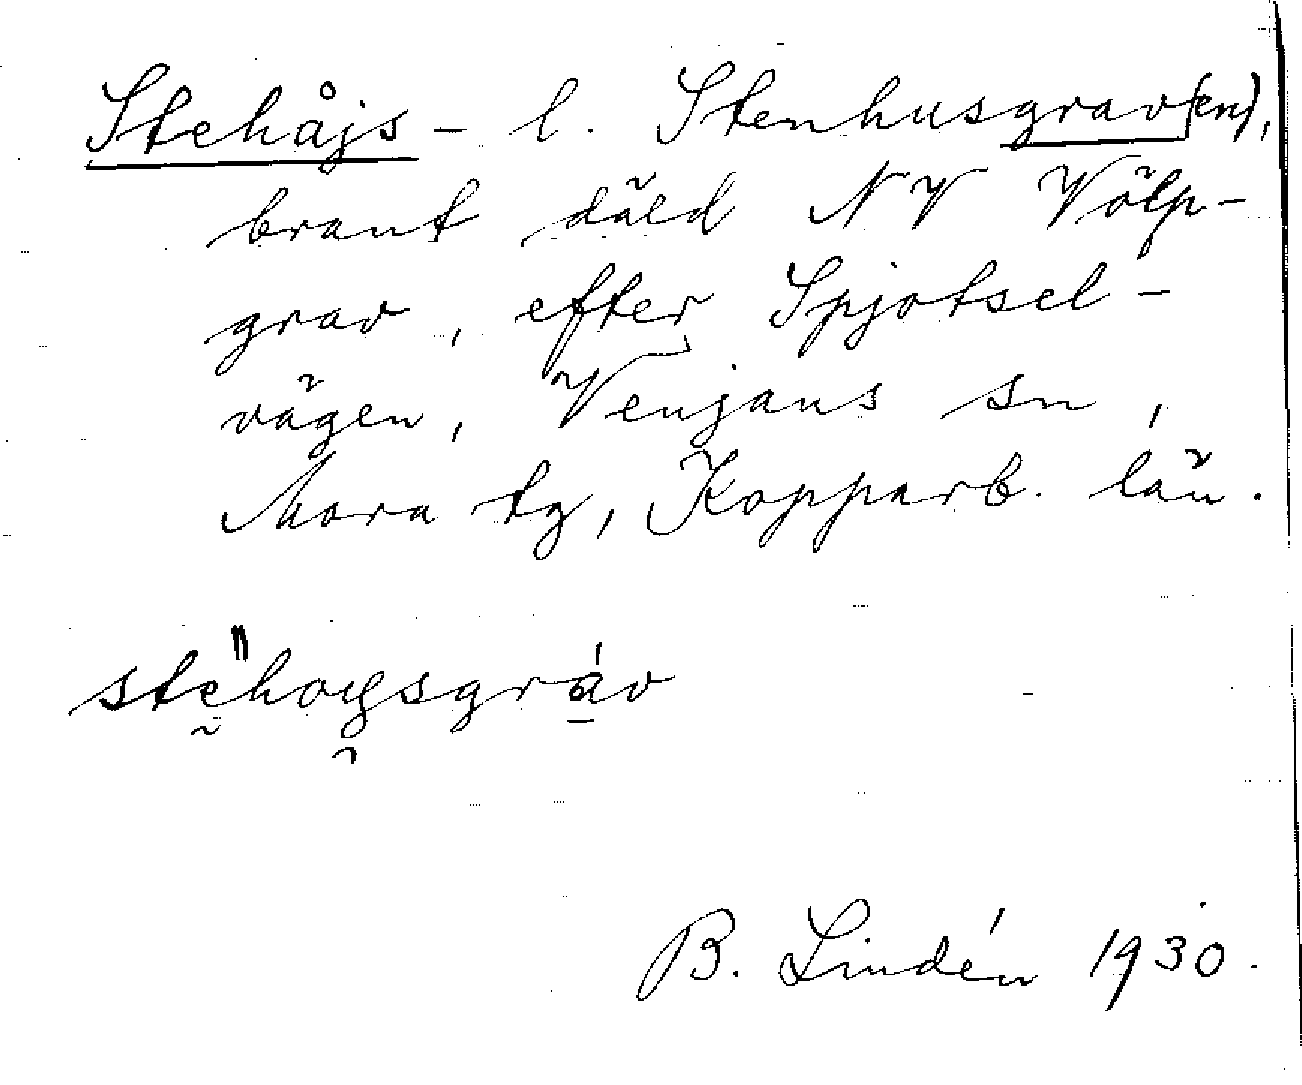 Stehåjs- l. Stenhusgrav(en),
brant däld NV Völp-
grav, efter Spjotsel-
vägen, Venjans sn,
Mora tg, Kopparb. län.
stehoysgráv
B. Lindén 1930.